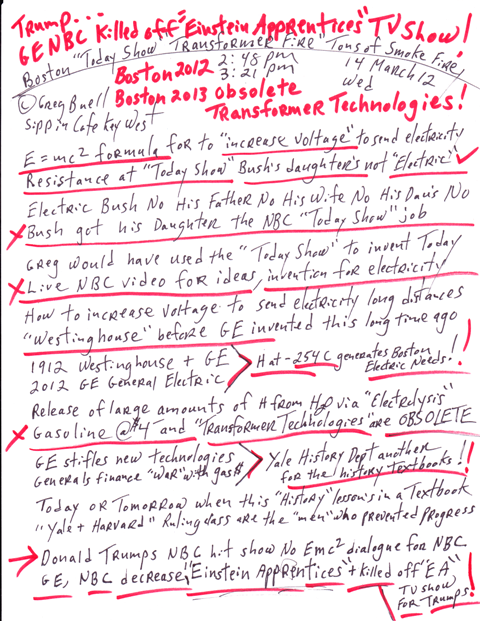 Trump...
GE NBC Killed off "Einstein Apprentices" TV Show!
Boston "Today Show" Transformer Fire" Tons of Smoke Fire,
Boston 2012 2:48 pm 14 March 12
3:21 pm Wed
© Greg Buell Boston 2013 obsolete
Sippin Cafe Key West Transformer Technologies!
E=mc² formula for to "increase voltage" to send electricity
Resistance at "Today Show" Bush's daughter's not "Electric"
Electric Bush No His Father No His Wife No His Dau's No
Bush got his Daughter the NBC "Today Show" job
Greg would have used the "Today Show" to invent Today
Live NBC video for ideas, invention for electricity
How to increase voltage to send electricity long distances
"Westinghouse" before GE invented this long time ago
1912 Westinghouse + GE
2012 GE General Electric
H at -254 C generates Boston Electric Needs!!
Release of large amounts of H from H₂O via "Electrolysis"
Gasoline @ $4 and "Transformer Technologies" are OBSOLETE
GE stifles new technologies
Generals finance "WAR" with gas $
Yale History Dept another
for the history Textbooks!!
Today or Tomorrow when this "History" lesson's in a Textbook
"Yale + Harvard" Ruling class are the "men" who prevented progress
Donald Trumps NBC hit show No Emc² dialogue for NBC
GE, NBC decrease, "Einstein Apprentices" + Killed off "EA"
TV show
FOR Trumps!